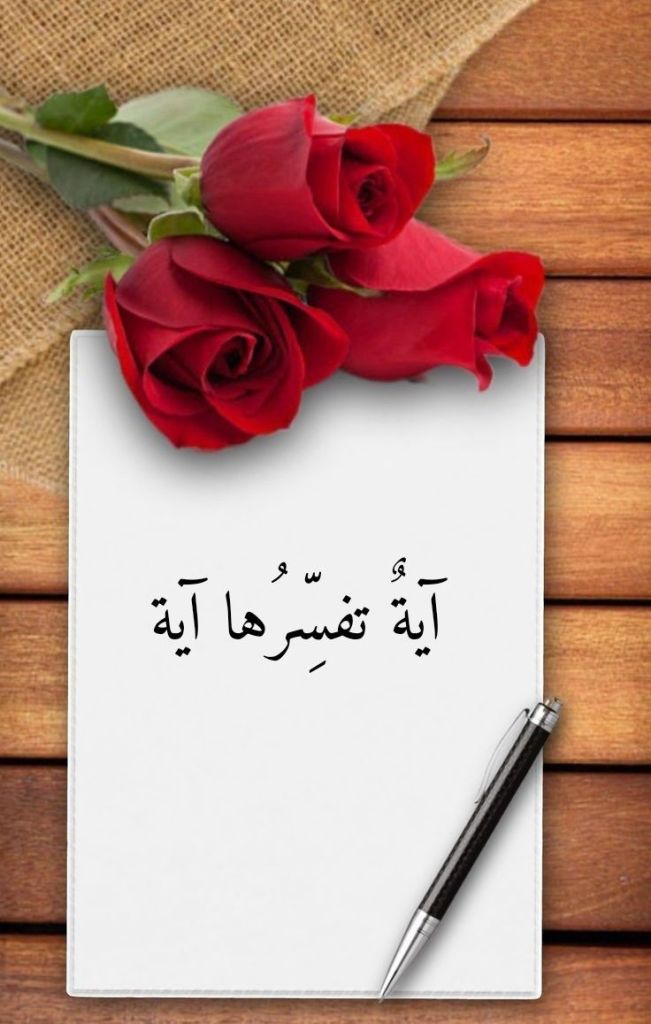 آيةٌ تفسِّرُها آية